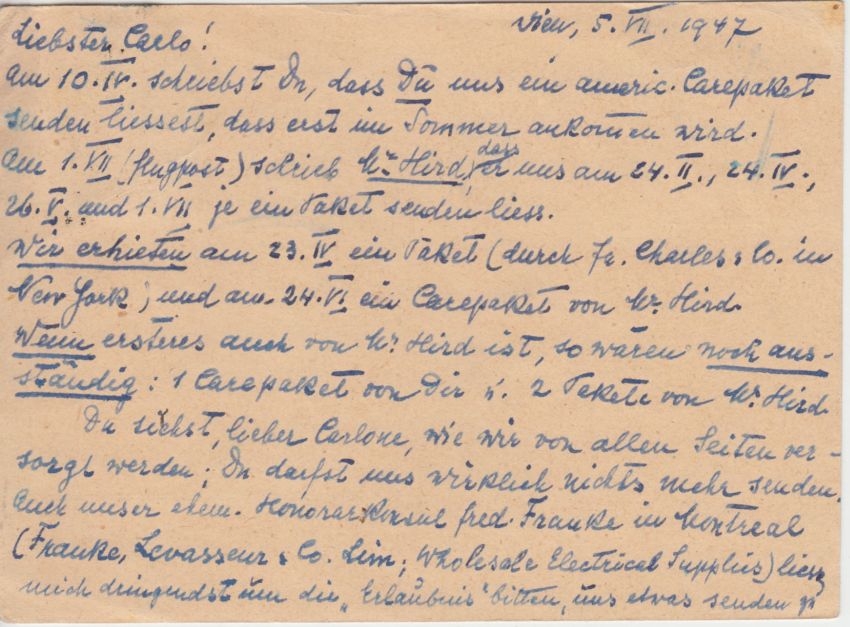 Wien, 5. VII. 1947
Liebster Carlo!
Am 10. IV. schriebst Du, dass Du uns ein americ. Carepaket
senden liessest, dass erst im Sommer ankommen wird.
Am 1. VII (Flugpost) schrieb Mr. Hird, dass er uns am 24. II., 24. IV.,
26. V. und 1. VII je ein Paket senden liess.
Wir erhielten am 23. IV ein Paket (durch Fa. Charles & Co. in
New York) und am 24. VI ein Carepaket von Mr. Hird.
Wenn ersteres auch von Mr. Hird ist, so wären noch aus-
ständig: 1 Carepaket von Dir u. 2 Pakete von Mr. Hird.
Du siehst, lieber Carlone, wie wir von allen Seiten ver-
sorgt werden; Du darfst uns wirklich nichts mehr senden.
Auch unser ehem. Honorarkonsul Fred. Franke in Montreal
(Franke, Levasseur & Co. Lim; Wholesale Electrical Supplies) liess
mich dringendst um die "Erlaubnis" bitten, uns etwas senden zu